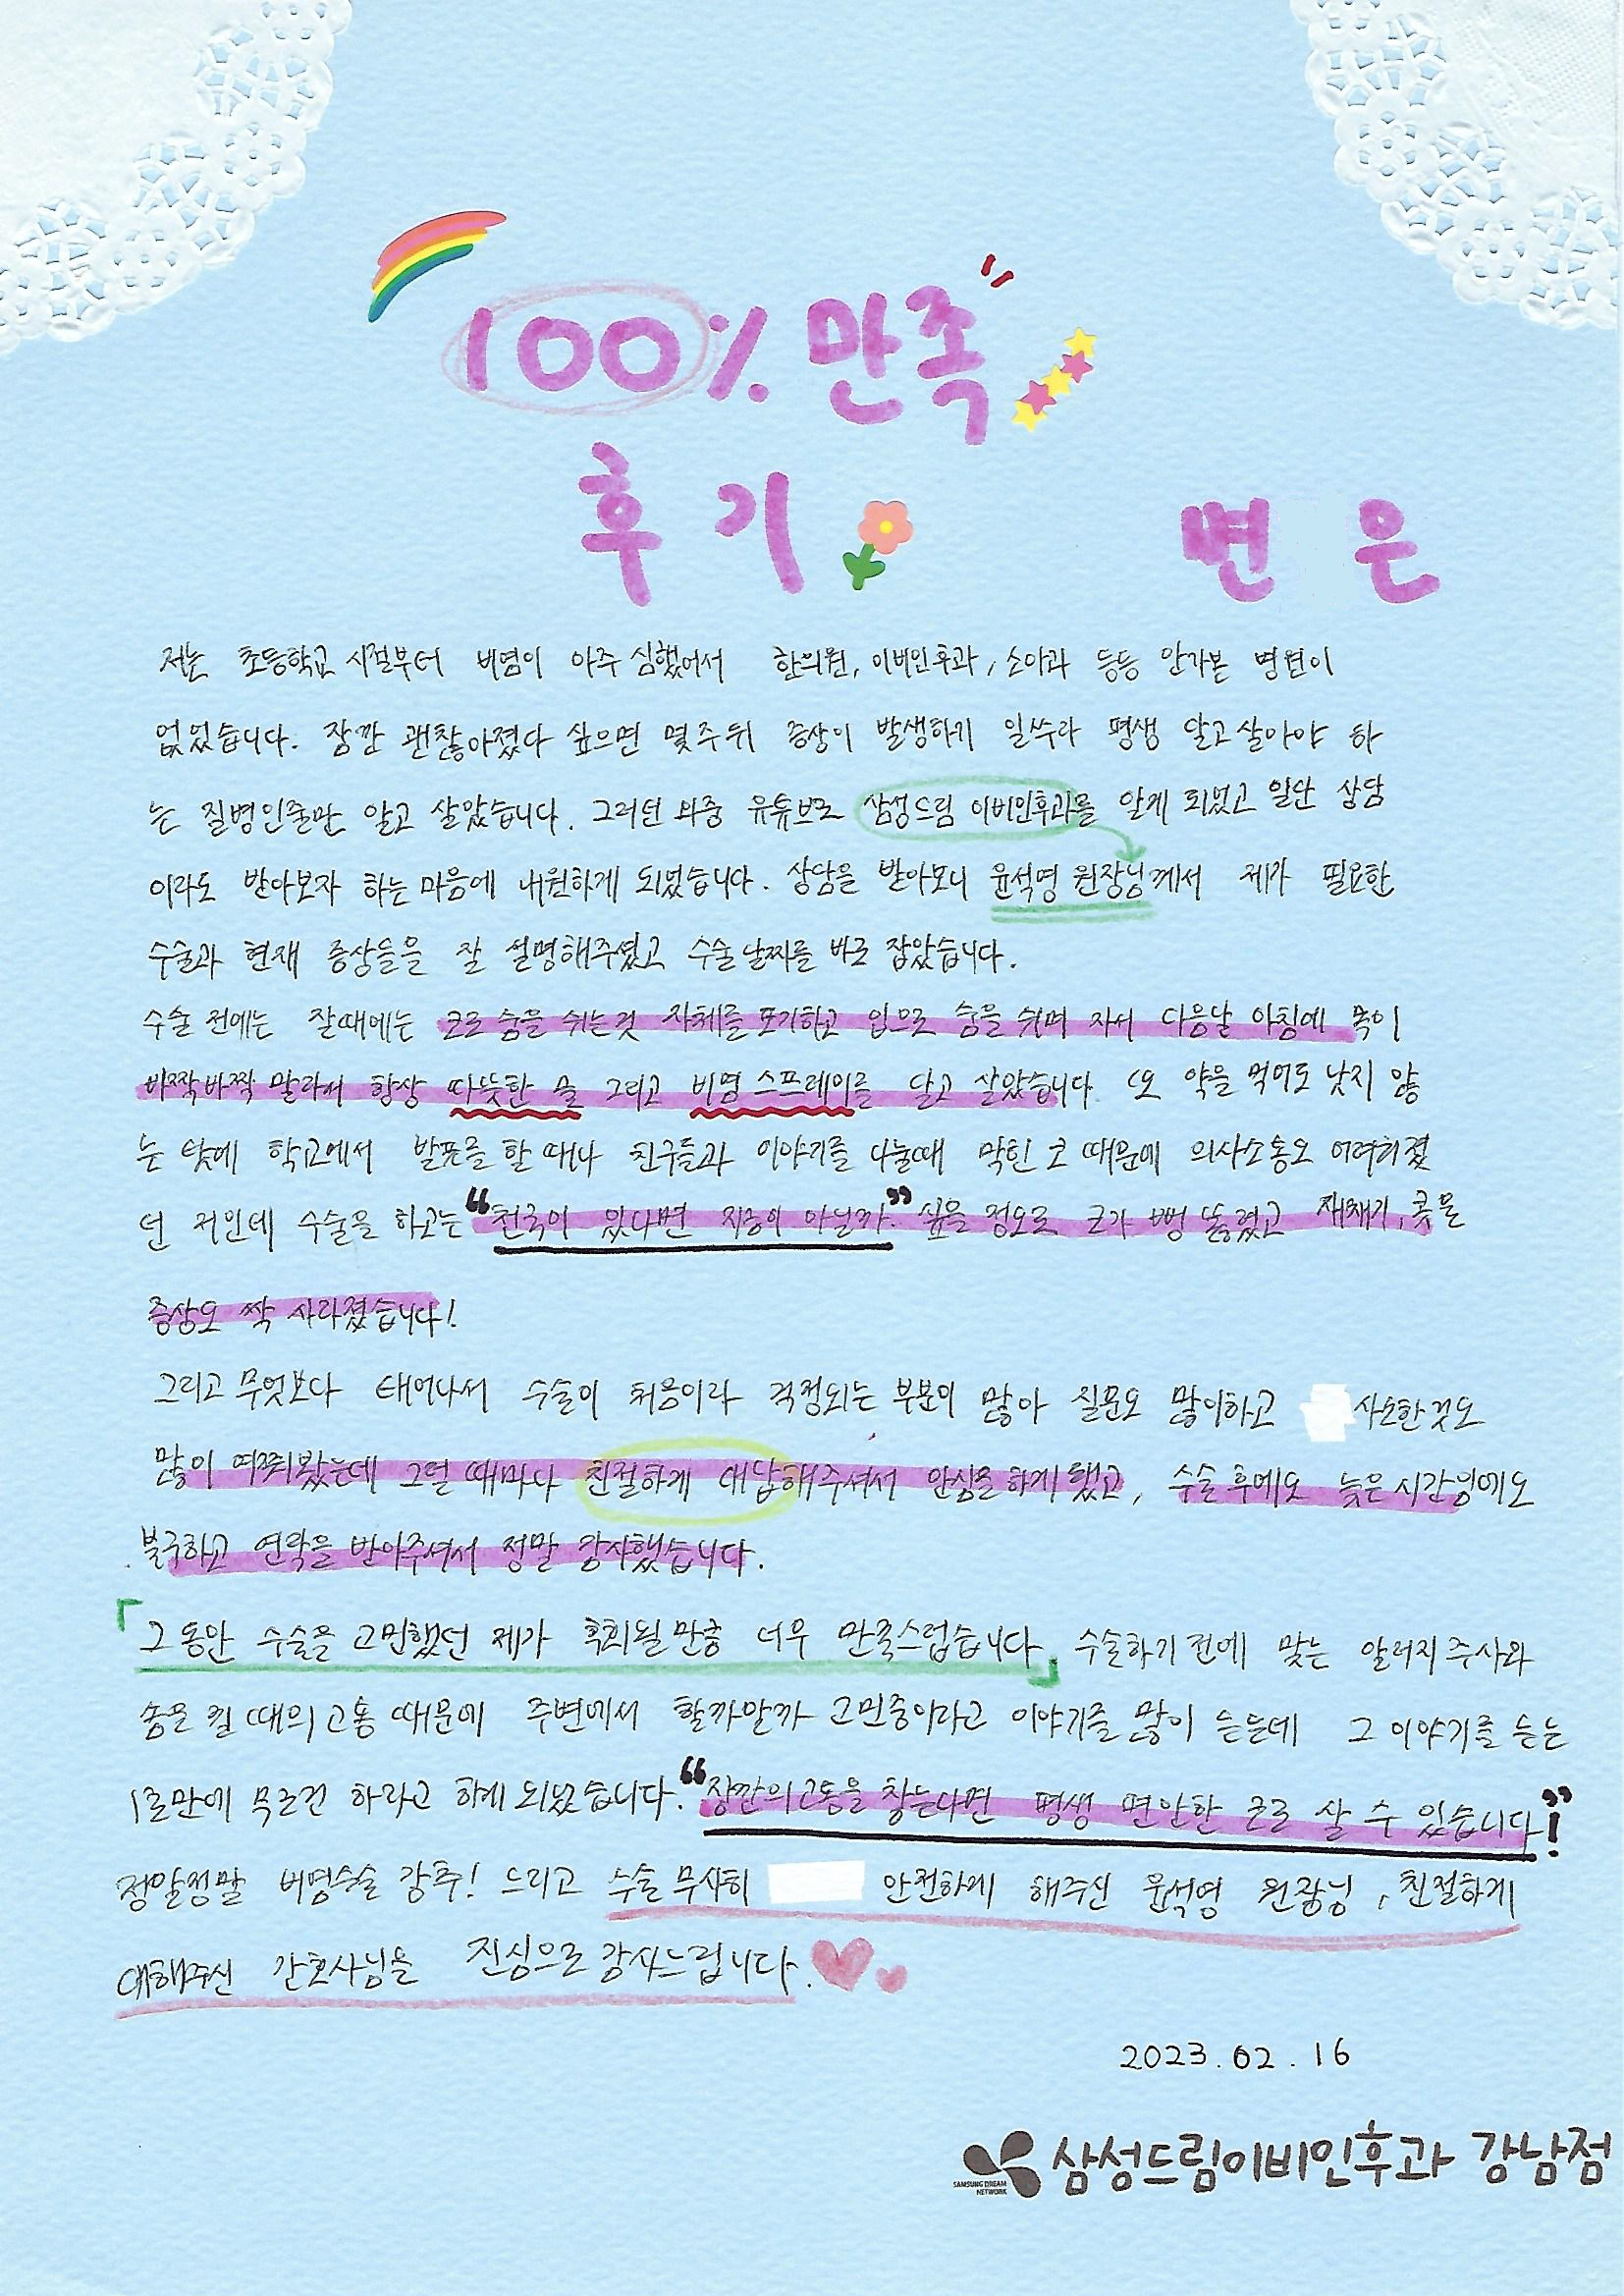 100% 만족
후기
변 은
저는 초등학교 시절부터 비염이 아주 심했어서 한의원, 이비인후과, 소아과 등등 안가본 병원이
없었습니다. 잠깐 괜찮아졌다 싶으면 몇주뒤 증상이 발생하기 일쑤라 평생 달고살아야 하
는 질병인줄만 알고 살았습니다. 그러던 와중 유튜브로 삼성드림 이비인후과를 알게 되었고 일단 상담
이라도 받아보자 하는 마음에 내원하게 되었습니다. 상담을 받아보니 윤석영 원장님께서 제가 필요한
수술과 현재 증상들을 잘 설명해주셨고 수술날짜를 바로 잡았습니다.
수술 전에는 잘때에는 코로 숨을 쉬는것 자체를 포기하고 입으로 숨을 쉬며 자서 다음날 아침에 목이
바짝바짝 말라서 항상 따뜻한 물 그리고 비염 스프레이를 달고 살았습니다 또 약을 먹어도 낫지 않
는 탓에 학교에서 발표를 할 때나 친구들과 이야기를 나눌때 막힌 코 때문에 의사소통도 어려워졌
던 저인데 수술을 하고는 “천국이 있다면 지금이 아닐까.” 싶을 정도로 코가 뻥 뚫렸고 재채기, 콧물
증상도 싹 사라졌습니다!
그리고 무엇보다 태어나서 수술이 처음이라 걱정되는 부분이 많아 질문도 많이하고 사소한것도
많이 여쭤봤는데 그럴 때마다 친절하게 대답해주셔서 안심을 하게 됐고, 수술 후에도 늦은 시간님에도
불구하고 연락을 받아주셔서 정말 감사했습니다.
「그동안 수술을 고민했던 제가 후회될 만큼 너무 만족스럽습니다」 수술하기 전에 맞는 알러지 주사와
솜을 뺄 때의 고통 때문에 주변에서 할까말까 고민중이라고 이야기를 많이 듣는데 그 이야기를 듣는
1초만에 무조건 하라고 하게 되었습니다. “잠깐의 고통을 참는다면 평생 편안한 코로 살 수 있습니다!”
정말정말 비염수술 강추! 그리고 수술 무사히 안전하게 해주신 윤석영 원장님, 친절하게
대해주신 간호사님을 진심으로 감사드립니다.
2023.02.16
SAMSUNG DREAM NETWORK 삼성드림이비인후과 강남점